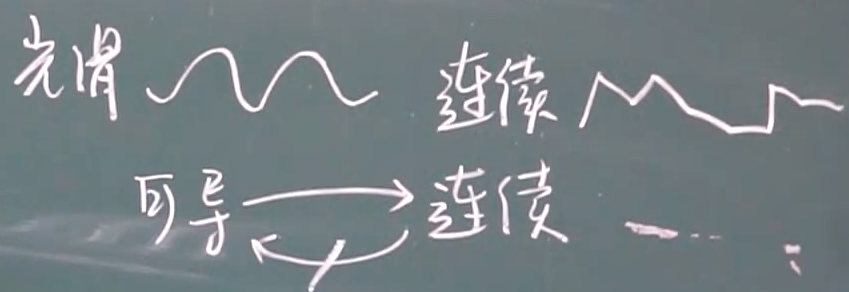 光滑 连续
可导 连续